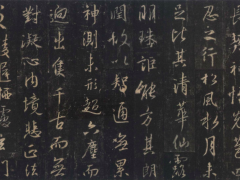 忍之行松風水月未
足比其清華仙露
明珠詎能方其朗
潤故以智通無累
神測未形超六塵而
迥出隻千古而無
對凝心內境悲正法
之陵遲栖慮